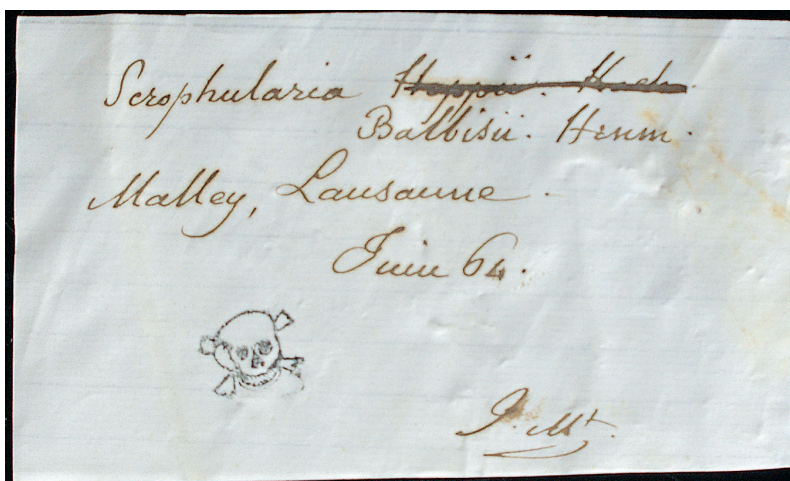 Scrophularia Hoppii. Koch.
Balbisii. Hornm.
Malley, Lausanne.
Juin 64.
J. Mt.